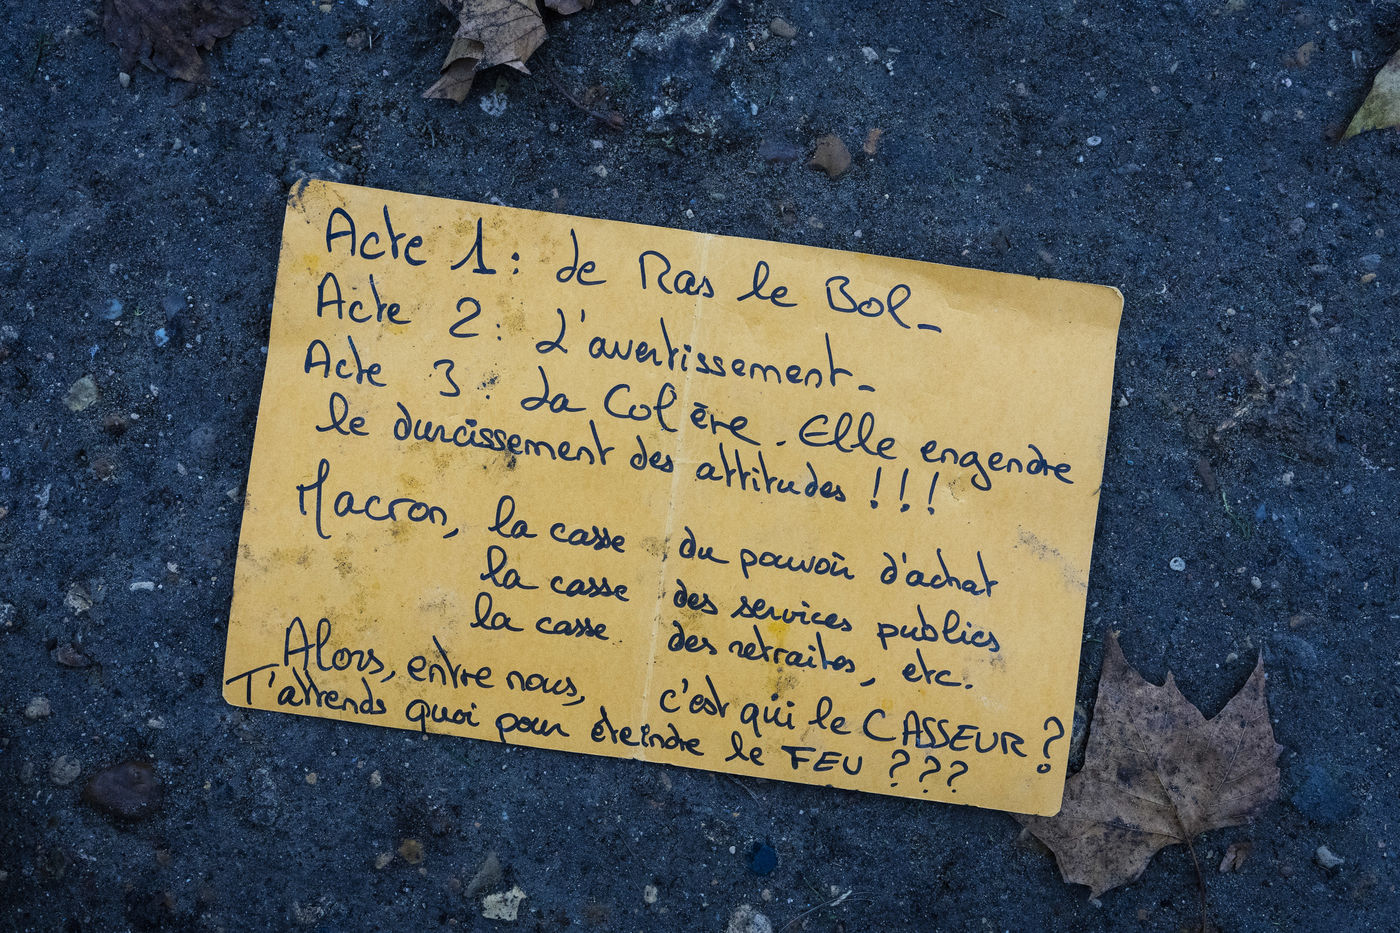 Acte 1 : Le Ras le Bol_
Acte 2 : L'avertissement_
Acte 3 : La Colère. Elle engendre
le durcissement des attitudes !!!
Macron, la casse du pouvoir d'achat
la casse des services publics
la casse des retraites, etc.
Alors, entre nous, c'est qui le CASSEUR ?
T'attends quoi pour éteindre le FEU ???